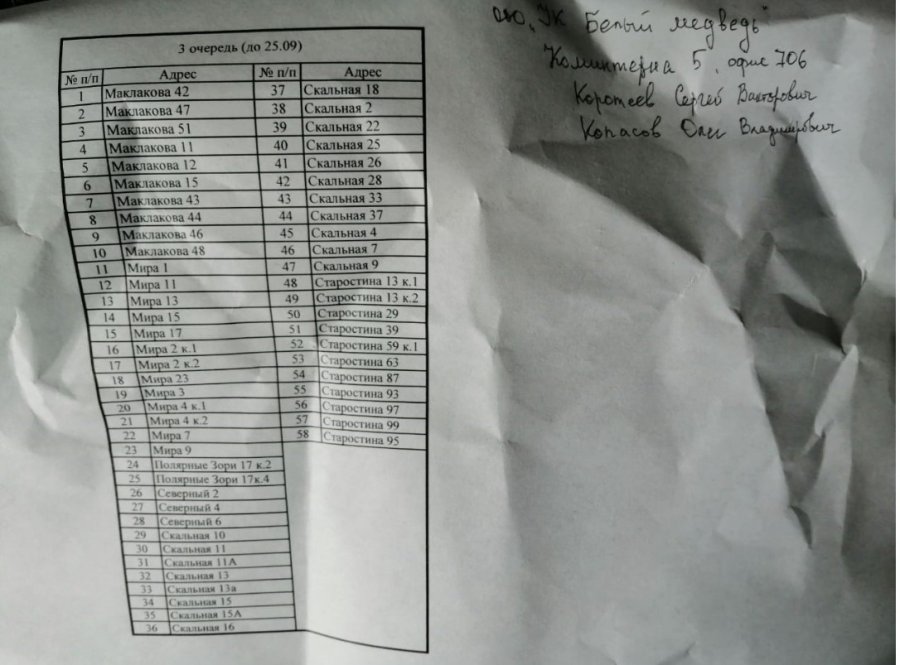 ООО "УК Белый медведь"
Коминтерна 5, офис 706
Коротеев Сергей Викторович
Копасов Олег Владимирович
3 очередь (до 25.09)
№ п/п Адрес № п/п Адрес
1 Маклакова 42 37 Скальная 18
2 Маклакова 47 38 Скальная 2
3 Маклакова 51 39 Скальная 22
4 Маклакова 11 40 Скальная 25
5 Маклакова 12 41 Скальная 26
6 Маклакова 15 42 Скальная 28
7 Маклакова 43 43 Скальная 33
8 Маклакова 44 44 Скальная 37
9 Маклакова 46 45 Скальная 4
10 Маклакова 48 46 Скальная 7
11 Мира 1 47 Скальная 9
12 Мира 11 48 Старостина 13 к.1
13 Мира 13 49 Старостина 13 к.2
14 Мира 15 50 Старостина 29
15 Мира 17 51 Старостина 39
16 Мира 2 к.1 52 Старостина 59 к.1
17 Мира 2 к.2 53 Старостина 63
18 Мира 23 54 Старостина 87
19 Мира 3 55 Старостина 93
20 Мира 4 к.1 56 Старостина 97
21 Мира 4 к.2 57 Старостина 99
22 Мира 7 58 Старостина 95
23 Мира 9
24 Полярные Зори 17 к.2
25 Полярные Зори 17к.4
26 Северный 2
27 Северный 4
28 Северный 6
29 Скальная 10
30 Скальная 11
31 Скальная 11А
32 Скальная 13
33 Скальная 13а
34 Скальная 15
35 Скальная 15А
36 Скальная 16